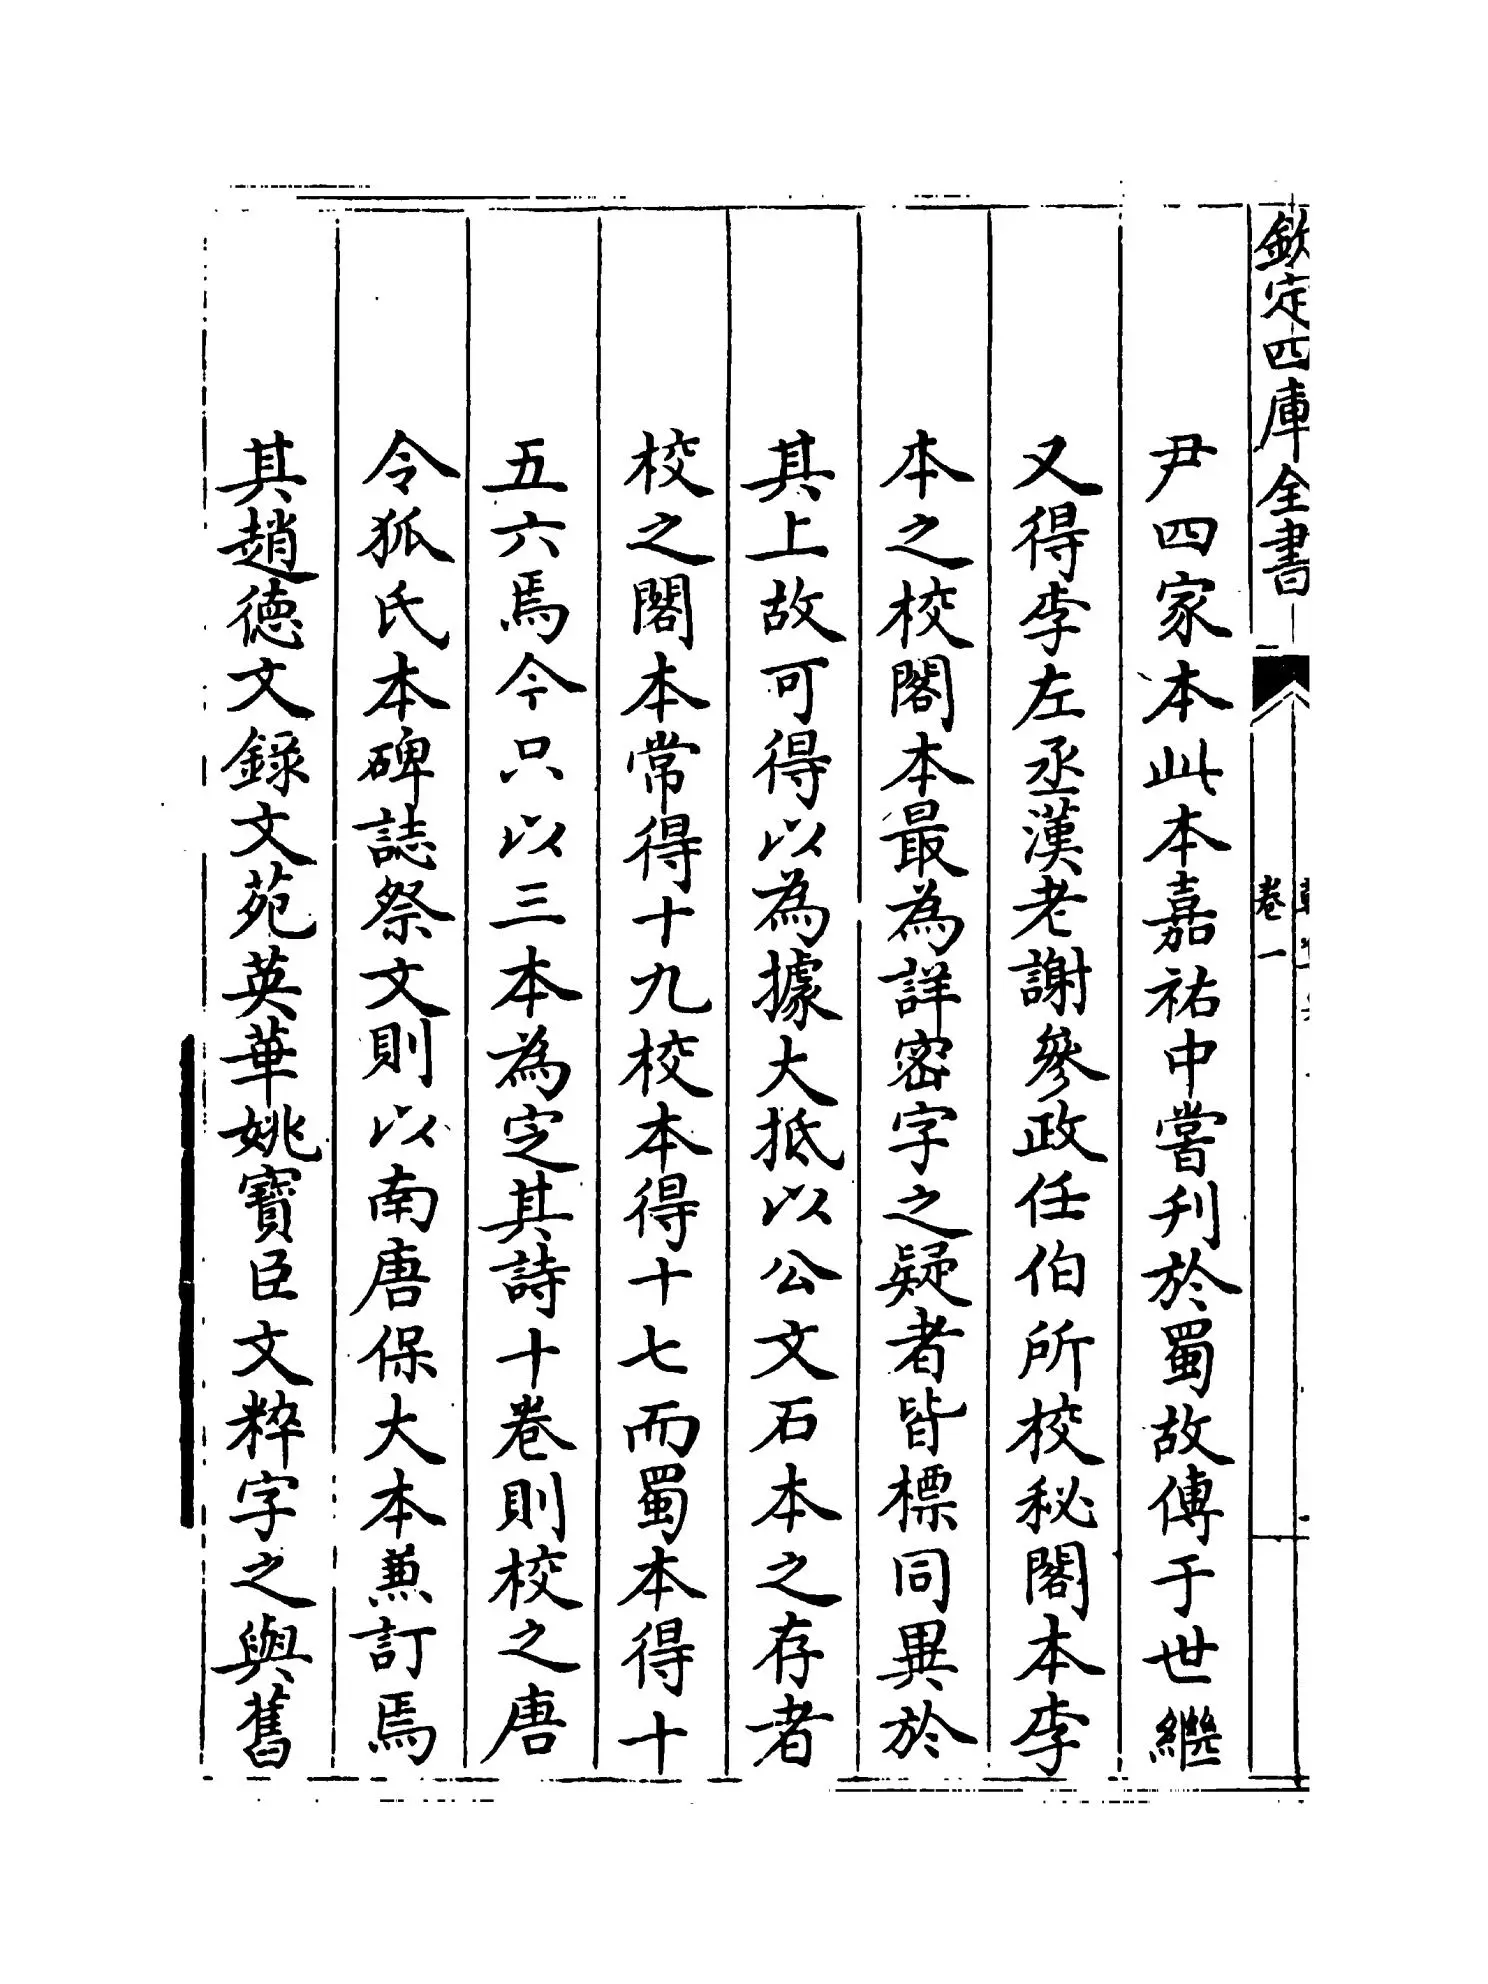 欽定四庫全書
卷一
尹四家本此本嘉祐中嘗刋於蜀故傳于世繼
又得李左丞漢老謝參政任伯所校秘閣本李
本之校閣本最為詳密字之疑者皆標同異於
其上故可得以為據大抵以公文石本之存者
校之閣本常得十九校本得十七而蜀本得十
五六焉今只以三本為定其詩十卷則校之唐
令狐氏本碑誌祭文則以南唐保大本兼訂焉
其趙德文錄文苑英華姚寶臣文粹字之與舊